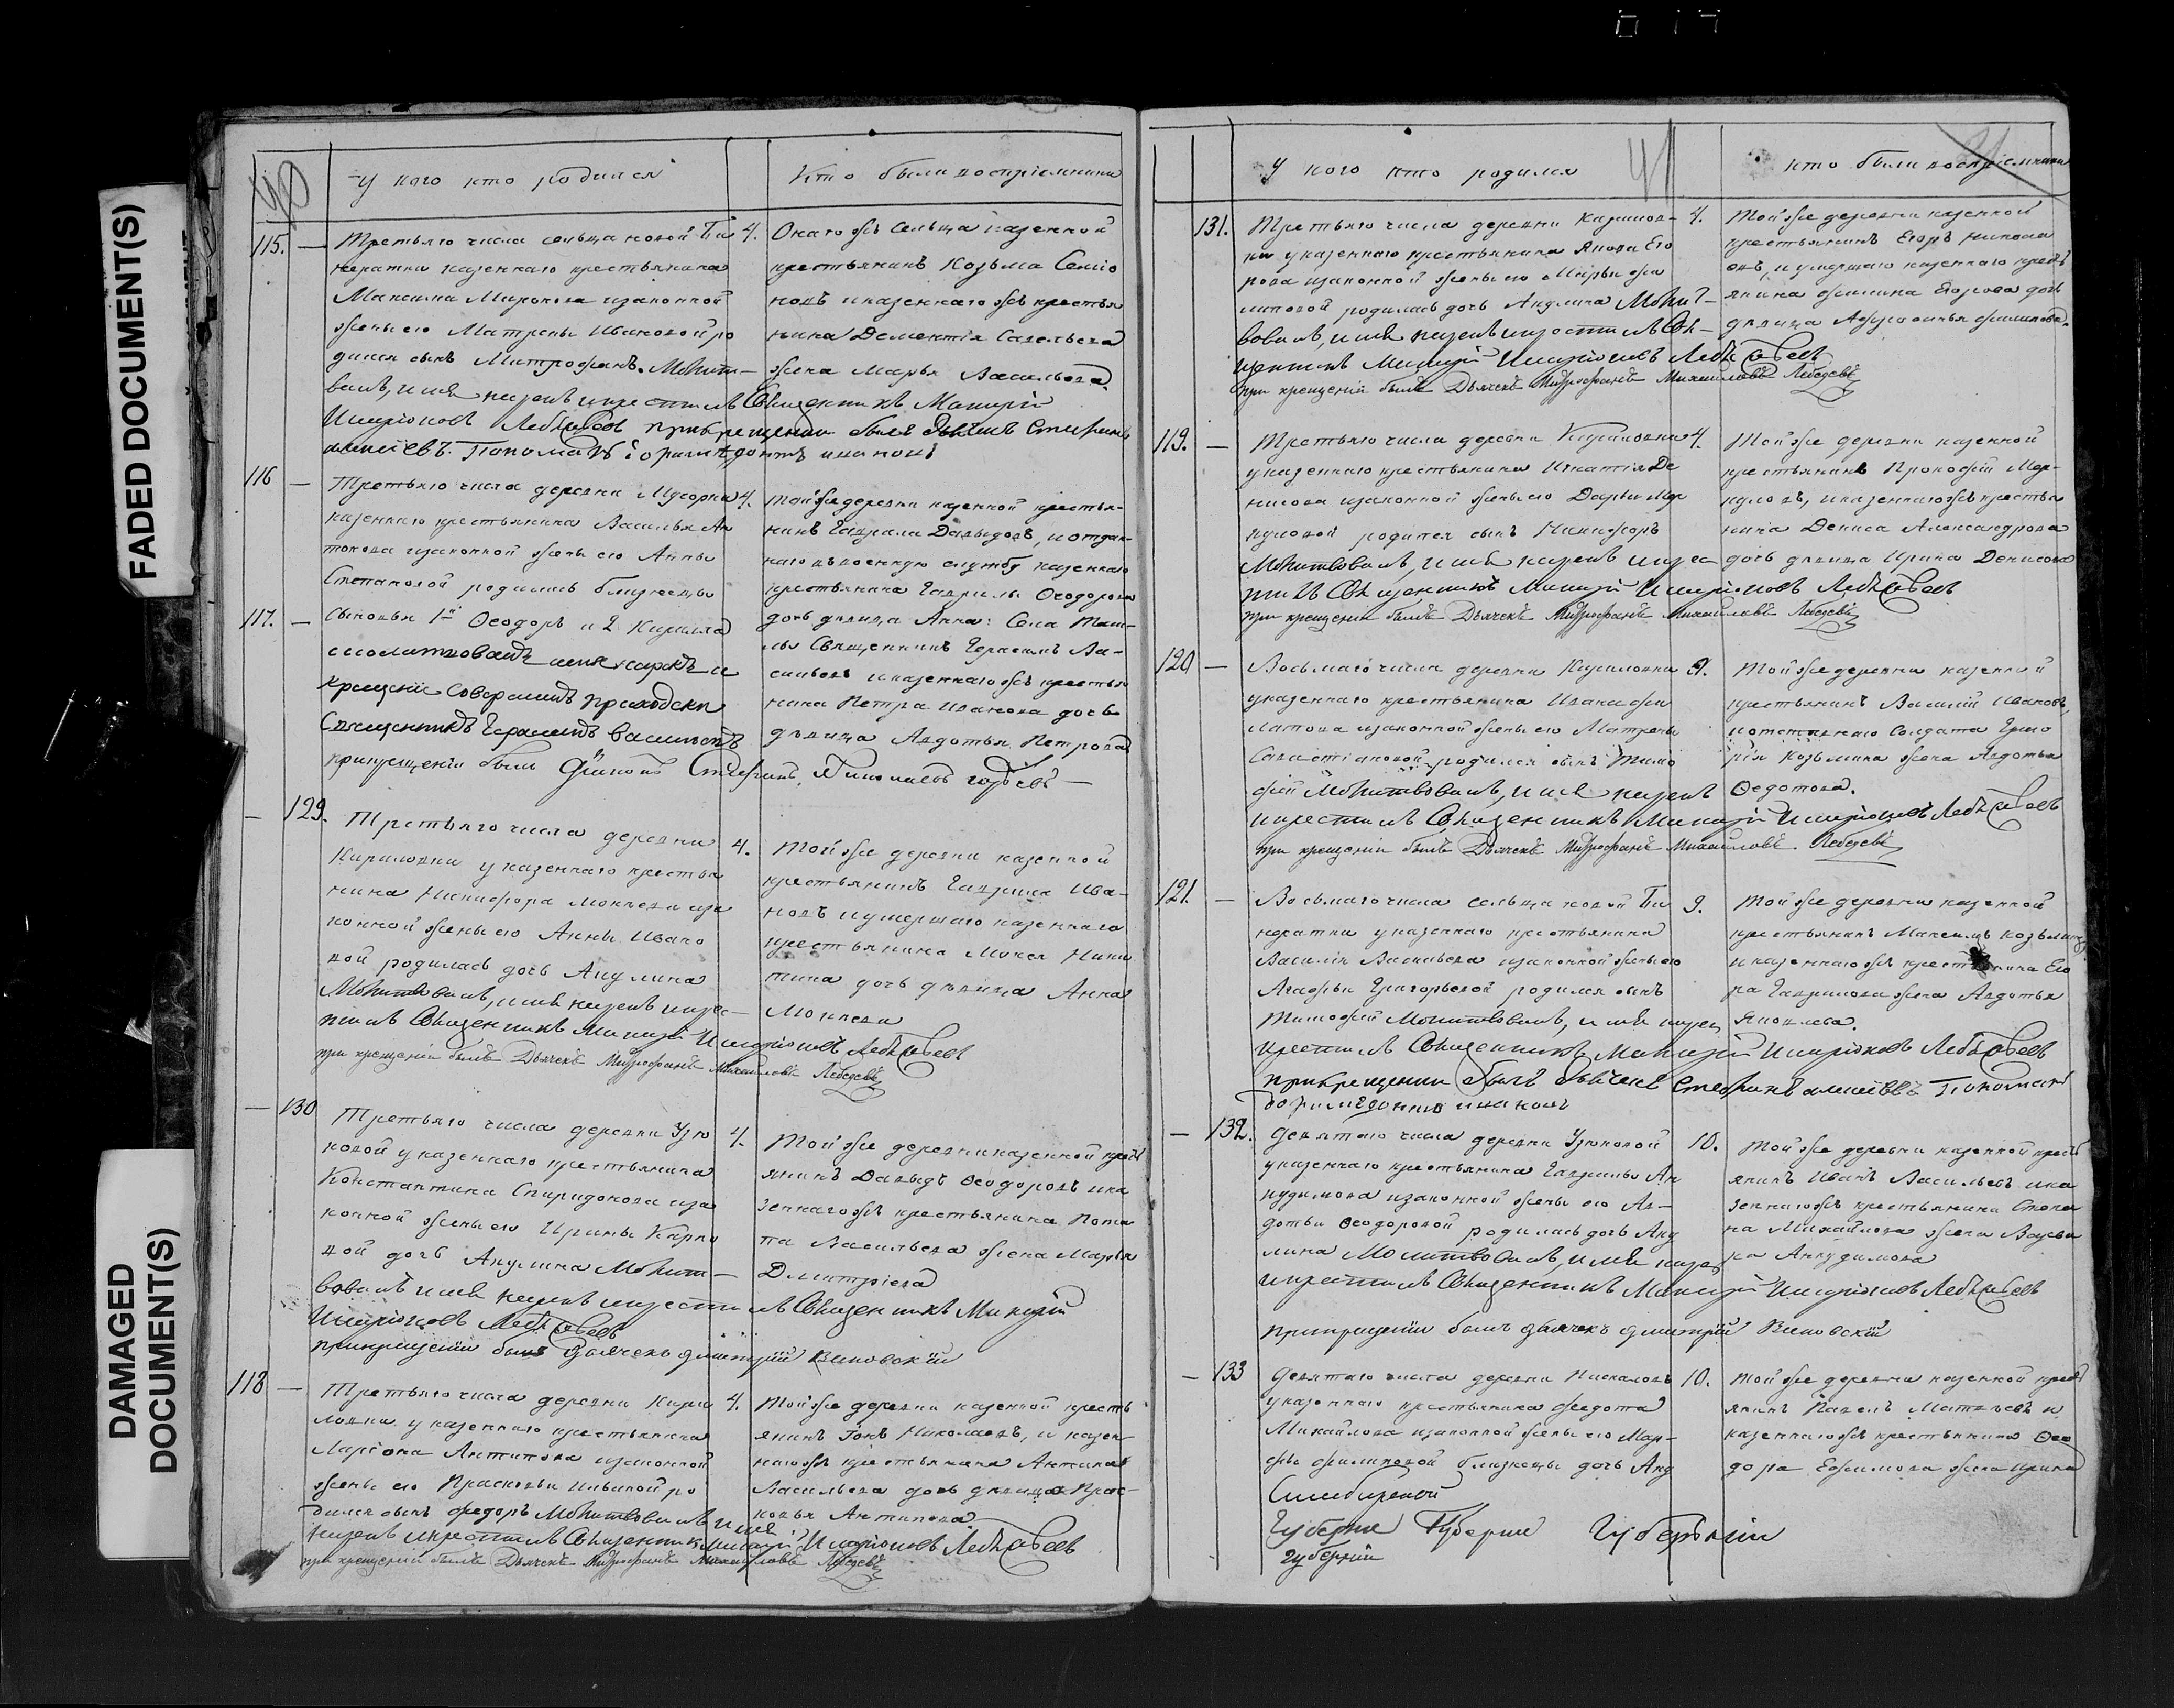 FADED DOCUMENT(S)
DAMAGED
DOCUMENT(S)
40
У кого кто родился
Кто были воспріемники
115. — Третьяго числа сельца новой Би
нератки казеннаго крестьянина
Максима Миронова изаконной
жены его Матрены Ивановой ро
дился сынъ Митрофанъ. Молит—
вовалъ, имя нарекъ икрестилъ Священникъ
Иларіоновъ Лебедевъ при крещении былъ дьячекъ Стефанъ
алексіевъ. Пономарь
4. Онаго жъ Сельца казенной
крестьянинъ Козьма Семіо
новъ иказеннаго жъ крестья
нина Дементія Савельева
жена Марья Васильева
116 — Третьяго числа деревни Мусорки
казеннаго крестьянина Василья Ан
тонова изаконной жены его Анны
Степановой родились близнецы
117. — Сыновья 1й Ѳеодоръ и 2 Кириллъ
имя нарекъ и
крещеніе совершилъ приходски
Священникъ Герасимъ Васильевъ
при крещеніи былъ
4. Той же деревни казенной крестья-
нинъ Гаврила Давыдовъ, и отдан-
наго въ военную службу казеннаго
крестьянина Гаврилы Ѳеодорова
дочь девица Анна: Села Таш-
лы Священникъ Герасимъ Ва-
сильевъ и казеннаго жъ крестья
нина Петра Иванова дочь
девица Авдотья Петрова
— 129. Третьяго числа деревни
Кириловки у казеннаго крестья
нина Никифора Мокеева иза
конной жены его Анны Ивано
вой родилась дочь Акулина
Молитвовалъ, имя нарекъ икрес—
тилъ Священникъ Иларіоновъ Лебедевъ
при крещеніи былъ Дьячекъ Митрофанъ Михаиловъ Лебедевъ
4. Той же деревни казенной
крестьянинъ Гаврила Ива-
новъ и умершаго казеннаго
крестьянина Мокея Ники
тина дочь девица Анна
Мокеева
— 130 Третьяго числа деревни Узю
ковой у казеннаго крестьянина
Константина Спиридонова иза
конной жены его Ирины Карпо
вой дочь Акулина Молит—
вовалъ имя нарекъ икрестилъ Священникъ
Иларіоновъ Лебедевъ
при крещеніи былъ дьячекъ дмитрій Виновскій
4. Той же деревни казенной крест
янинъ Давыдъ Ѳеодоровъ ика
зеннаго жъ крестьянина Пота
па Васильева жена Марья
Дмитріева
118 — Третьяго числа деревни Кири
ловки у казеннаго крестьянина
Ларіона Антипова изаконной
жены его Прасковьи Ильиной ро
дился сынъ Федоръ Молитвовалъ имя
нарекъ икрестилъ Священникъ Иларіоновъ Лебедевъ
при крещеніи былъ Дьячекъ Митрофанъ Михаиловъ Лебедевъ
4. Той же деревни казенной кресть
янинъ Іонъ Николаевъ, и казен-
наго жъ крестьянина Антипа
Васильева дочь девица Прас-
ковья Антипова
41
У кого кто родился
кто были воспріемники
131. Третьяго числа деревни Кирилов-
ки у казеннаго крестьянина Якова Его
рова изаконной жены его Марьи Фи
липовой родилась дочь Акулина Молит—
вовалъ, имя нарекъ икрестилъ Свя—
щенникъ Иларіоновъ Лебедевъ
при крещеніи былъ Дьячекъ Митрофанъ Михаиловъ Лебедевъ
4. Той же деревни казенной
крестьянинъ Егоръ Никола
евъ, и умершаго казеннаго крест
янина Филипа Егорова дочь
девица Афросинья Филипова.
119. — Третьяго числа деревни Кириловки
у казеннаго крестьянина Игнатія Де
нисова изаконной жены его Дарьи Мер
куловой родился сынъ Никифоръ
Молитвовалъ, имя нарекъ икрес
тилъ Священникъ Иларіоновъ Лебедевъ
при крещеніи былъ Дьячекъ Митрофанъ Михаиловъ Лебедевъ
4. Той же деревни казенной
крестьянинъ Прокофій Мер-
куловъ, и казеннаго жъ крестья
нина Дениса Александрова
дочь девица Ирина Денисова
120 — Восьмаго числа деревни Кириловки
у казеннаго крестьянина Ивана Фи
латова изаконной жены его Матрены
Савастіановой родился сынъ Тимо
фей Молитвовалъ, имя нарекъ
икрестилъ Священникъ Иларіоновъ Лебедевъ
при крещеніи былъ Дьячекъ Митрофанъ Михаиловъ Лебедевъ
9. Той же деревни казенной
крестьянинъ Василій Ивановъ,
Солдата Григо
рія Козьмина жена Авдотья
Ѳедотова.
121. — Восьмаго числа сельца новой Би
нератки у казеннаго крестьянина
Василія Васильева изаконной жены его
Агафьи Григорьевой родился сынъ
Тимофей Молитвовалъ, имя нарек
крестилъ Священникъ Иларіоновъ Лебедевъ
при крещении былъ дьячекъ Стефанъ алексіевъ Пономарь
9. Той же деревни казенной
крестьянинъ Максимъ Козьминъ
и казеннаго жъ крестьянина Его
ра Гаврилова жена Авдотья
Яковлева.
— 132. Девятаго числа деревни Узюковой
у казеннаго крестьянина Гаврилы Ан
кудимова изаконной жены его Ав-
дотьи Ѳеодоровой родилась дочь Аку
лина Молитвовалъ, имя нарек
икрестилъ Священникъ Иларіоновъ Лебедевъ
при крещеніи былъ дьячекъ дмитрій Виновскій
10. Той же деревни казенной крест
янинъ Иванъ Васильевъ ика
зеннаго жъ крестьянина Степа
на Михайлова жена Варва
ра Анкудимова
— 133 Девятаго числа деревни Пискаловъ
у казеннаго крестьянина Федота
Михайлова изаконной жены его Мар-
фы Филиповой близнецы дочь Аку
10. Той же деревни казенной крест
янинъ Павелъ Матвеевъ и
казеннаго жъ крестьянина Ѳео
дора Ефимова жена Ирина
Симбирской
Губерніи Губерніи Губерніи
губерніи